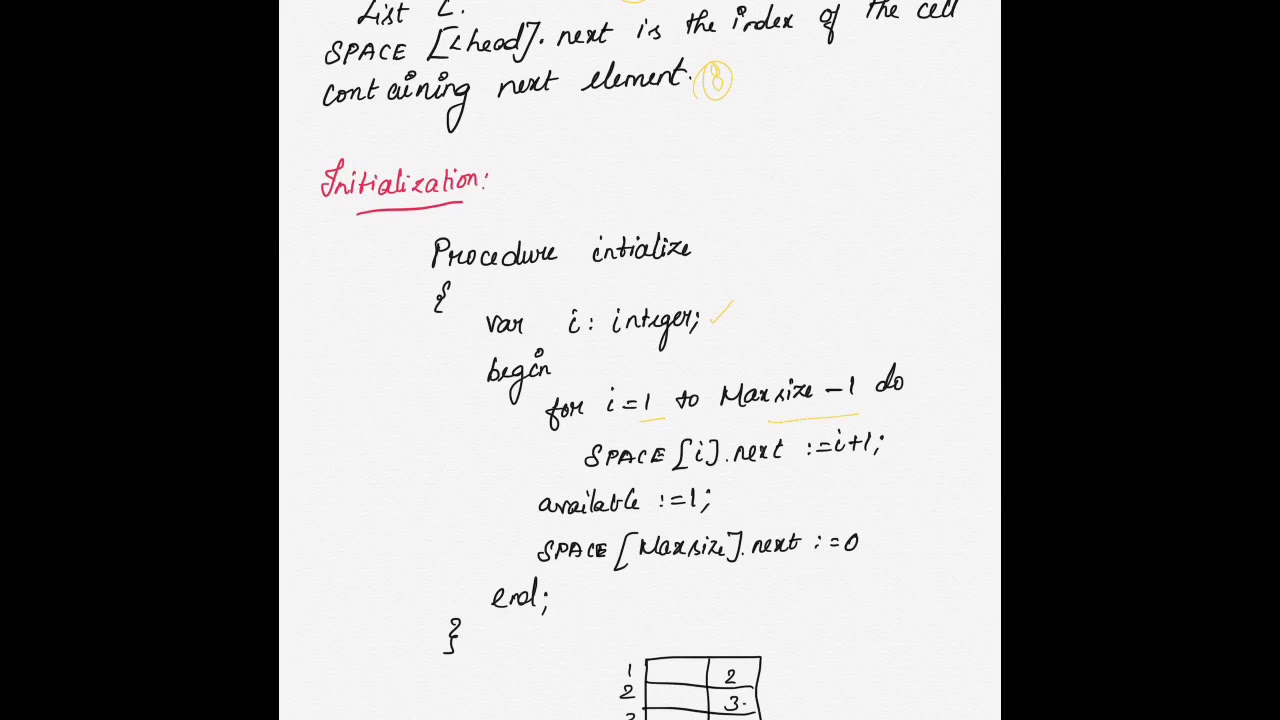 List L.
SPACE [Lhead]. next is the index of the cell
containing next element. 8
Initialization:
Procedure intialize
{
var i: integer; ✓
begin
for i=1 to Maxsize -1 do
SPACE [i].next :=i+1;
available :=1;
SPACE [Maxsize].next :=0
end;
}
1 2
2 3.
3